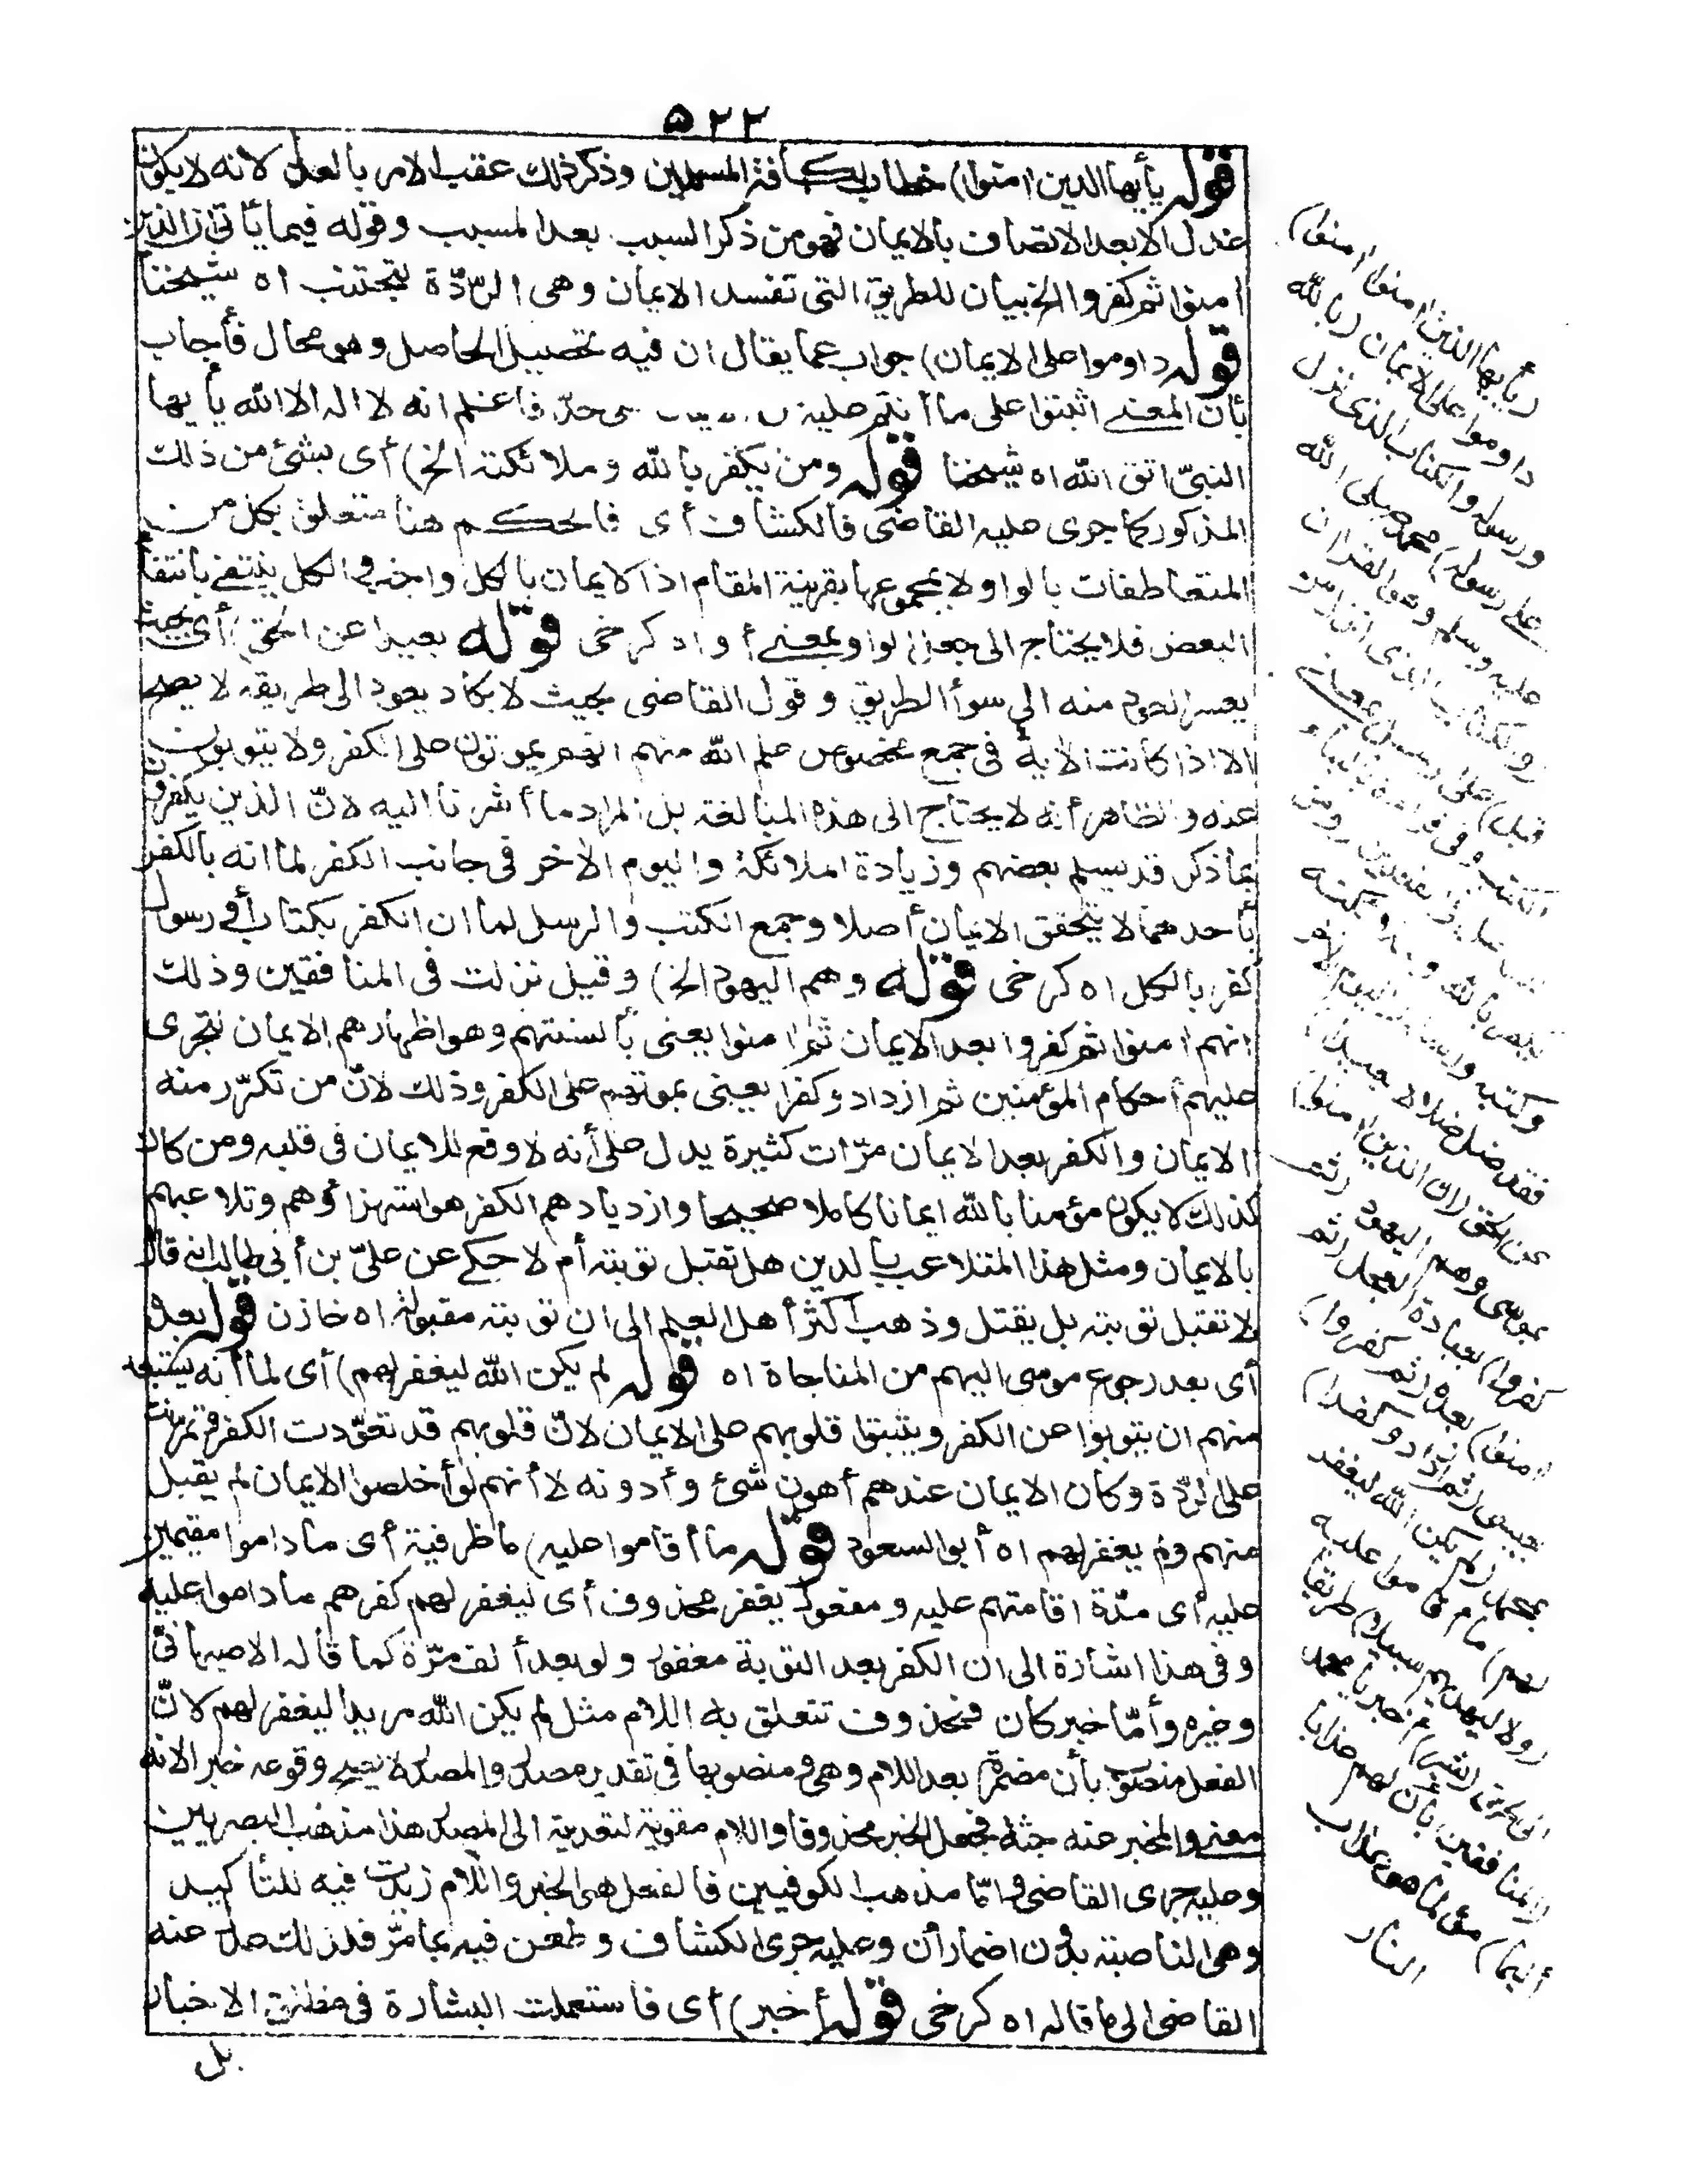 ۵۲۲
قوله يأيها الذين امنوا) خطاب لكافة المسلمين وذكر ذلك عقب الامر بالعدل لانه لا يكون
عدل الا بعد الاتصاف بالايمان فهو من ذكر السبب بعد المسبب وقوله فيما يأتى ان الذين
امنوا ثم كفروا الخ بيان للطريق التى تفسد الايمان وهى الردّة لتجتنب اه شيخنا
قوله داوموا على الايمان) جواب عما يقال ان فيه تحصيل الحاصل وهو محال فأجاب
بأن المعنى اثبتوا على ما أنتم عليه حدّ فاعلم انه لا اله الا الله يأيها
النبىّ اتق الله اه شيخنا قوله ومن يكفر بالله وملائكته الخ) أى بشئ من ذلك
المذكور كما جرى عليه القاضى فالكشاف أى فالحكم هنا متعلق بكل من
المتعاطفات بالواو لا بمجموعها بقرينة المقام اذ الايمان بالكل واجب والكل ينتفى بانتفا
البعض فلا يحتاج الى جعل الواو بمعنى أو اه كرخى قوله بعيدا عن الحق) أى بحيث
يعسر العود منه الى سوأ الطريق وقول القاضى بحيث لا يكاد يعود الى طريقه لا يصح
الا اذا كانت الاية فى جمع مخصوص علم الله منهم انهم يموتون على الكفر ولا يتوبون
عنه والظاهر أنه لا يحتاج الى هذه المبالغة بل المراد ما أشرنا اليه لانّ الذين يكفرون
بما ذكر قد يسلم بعضهم وزيادة الملائكة واليوم الاخر فى جانب الكفر لما انه بالكفر
بأحدهما لا يتحقق الايمان أصلا وجمع الكتب والرسل لما ان الكفر بكتاب أو رسول
كفر بالكل اه كرخى قوله وهم اليهود الخ) وقيل نزلت فى المنافقين وذلك
انهم امنوا ثم كفروا بعد الايمان ثم امنوا يعنى بألسنتهم وهو اظهارهم الايمان لتجرى
عليهم أحكام المؤمنين ثم ازدادوا كفرا يعنى بموتهم على الكفر وذلك لانّ من تكرّر منه
الايمان والكفر بعد الايمان مرّات كثيرة يدل على أنه لا وقع للايمان فى قلبه ومن كان
كذلك لا يكون مؤمنا بالله ايمانا كاملا صحيحا وازديادهم الكفر هو استهزاؤهم وتلاعبهم
بالايمان ومثل هذا المتلاعب بالدين هل تقبل توبته أم لا حكى عن علىّ بن أبى طالب انه قال
لا تقبل توبته بل يقتل وذهب أكثر أهل العلم الى ان توبته مقبولة اه خازن قوله بعده
أى بعد رجوع موسى اليهم من المناجاة اه قوله لم يكن الله ليغفر لهم) أى لما أنه يستبعد
منهم ان يتوبوا عن الكفر ويثبتوا قلوبهم على الايمان لانّ قلوبهم قد تعوّدت الكفر وتمرّنت
على الردّة وكان الايمان عندهم أهون شئ وأدونه لا أنهم لو أخلصوا الايمان لم يقبل
منهم ولم يغفر لهم اه أبو السعود قوله ما أقاموا عليه) ما ظرفية أى ما داموا مقيمين
عليه أى مدّة اقامتهم عليه ومفعول يغفر محذوف أى ليغفر لهم كفرهم ما داموا عليه
وفى هذا اشارة الى ان الكفر بعد التوبة مغفور ولو بعد ألف مرّة كما قاله الاصبهانىّ
وغيره وأمّا خبر كان فمحذوف تتعلق به اللام مثل لم يكن الله مريدا ليغفر لهم لانّ
الفعل منصوب بأن مضمرة بعد اللام وهى ومنصوبها فى تقدير مصدر والمصدر لا يصح وقوعه خبرا لانه
معنى والمخبر عنه جثة فجعل الخبر محذوفا واللام مقوية لتعديته الى المصدر هذا مذهب البصريين
وعليه جرى القاضى وامّا مذهب الكوفيين فالفعل هو الخبر واللام زيدت فيه للتأكيد
وهى الناصبة بدون اضمار أن وعليه جرى الكشاف وطعن فيه بما مرّ فلذلك عدل عنه
القاضى الى ما قاله اه كرخى قوله أخبر) أى فاستعملت البشارة فى مطلق الاخبار
بل
(يأيها الذين امنوا امنوا)
داوموا على الايمان (بالله
ورسوله والكتاب الذى نزل
على رسوله) محمد صلى الله
عليه وسلم وهو القران
(والكتاب الذى انزل من
قبل) على الرسل بمعنى
الكتب وفى قراءة بالبناء
للفاعل فى الفعلين (ومن
يكفر بالله وملائكته
وكتبه ورسله واليوم الاخر
فقد ضل ضلالا بعيدا)
عن الحق (ان الذين امنوا)
بموسى وهم اليهود (ثم
كفروا) بعبادة العجل (ثم
امنوا) بعده (ثم كفروا)
بعيسى (ثم ازدادوا كفرا)
بمحمد (لم يكن الله ليغفر
لهم) ما أقاموا عليه
(ولا ليهديهم سبيلا) طريقا
الى الحق (بشر) أخبر يا محمد
(المنافقين بأن لهم عذابا
أليما) مؤلما هو عذاب
النار